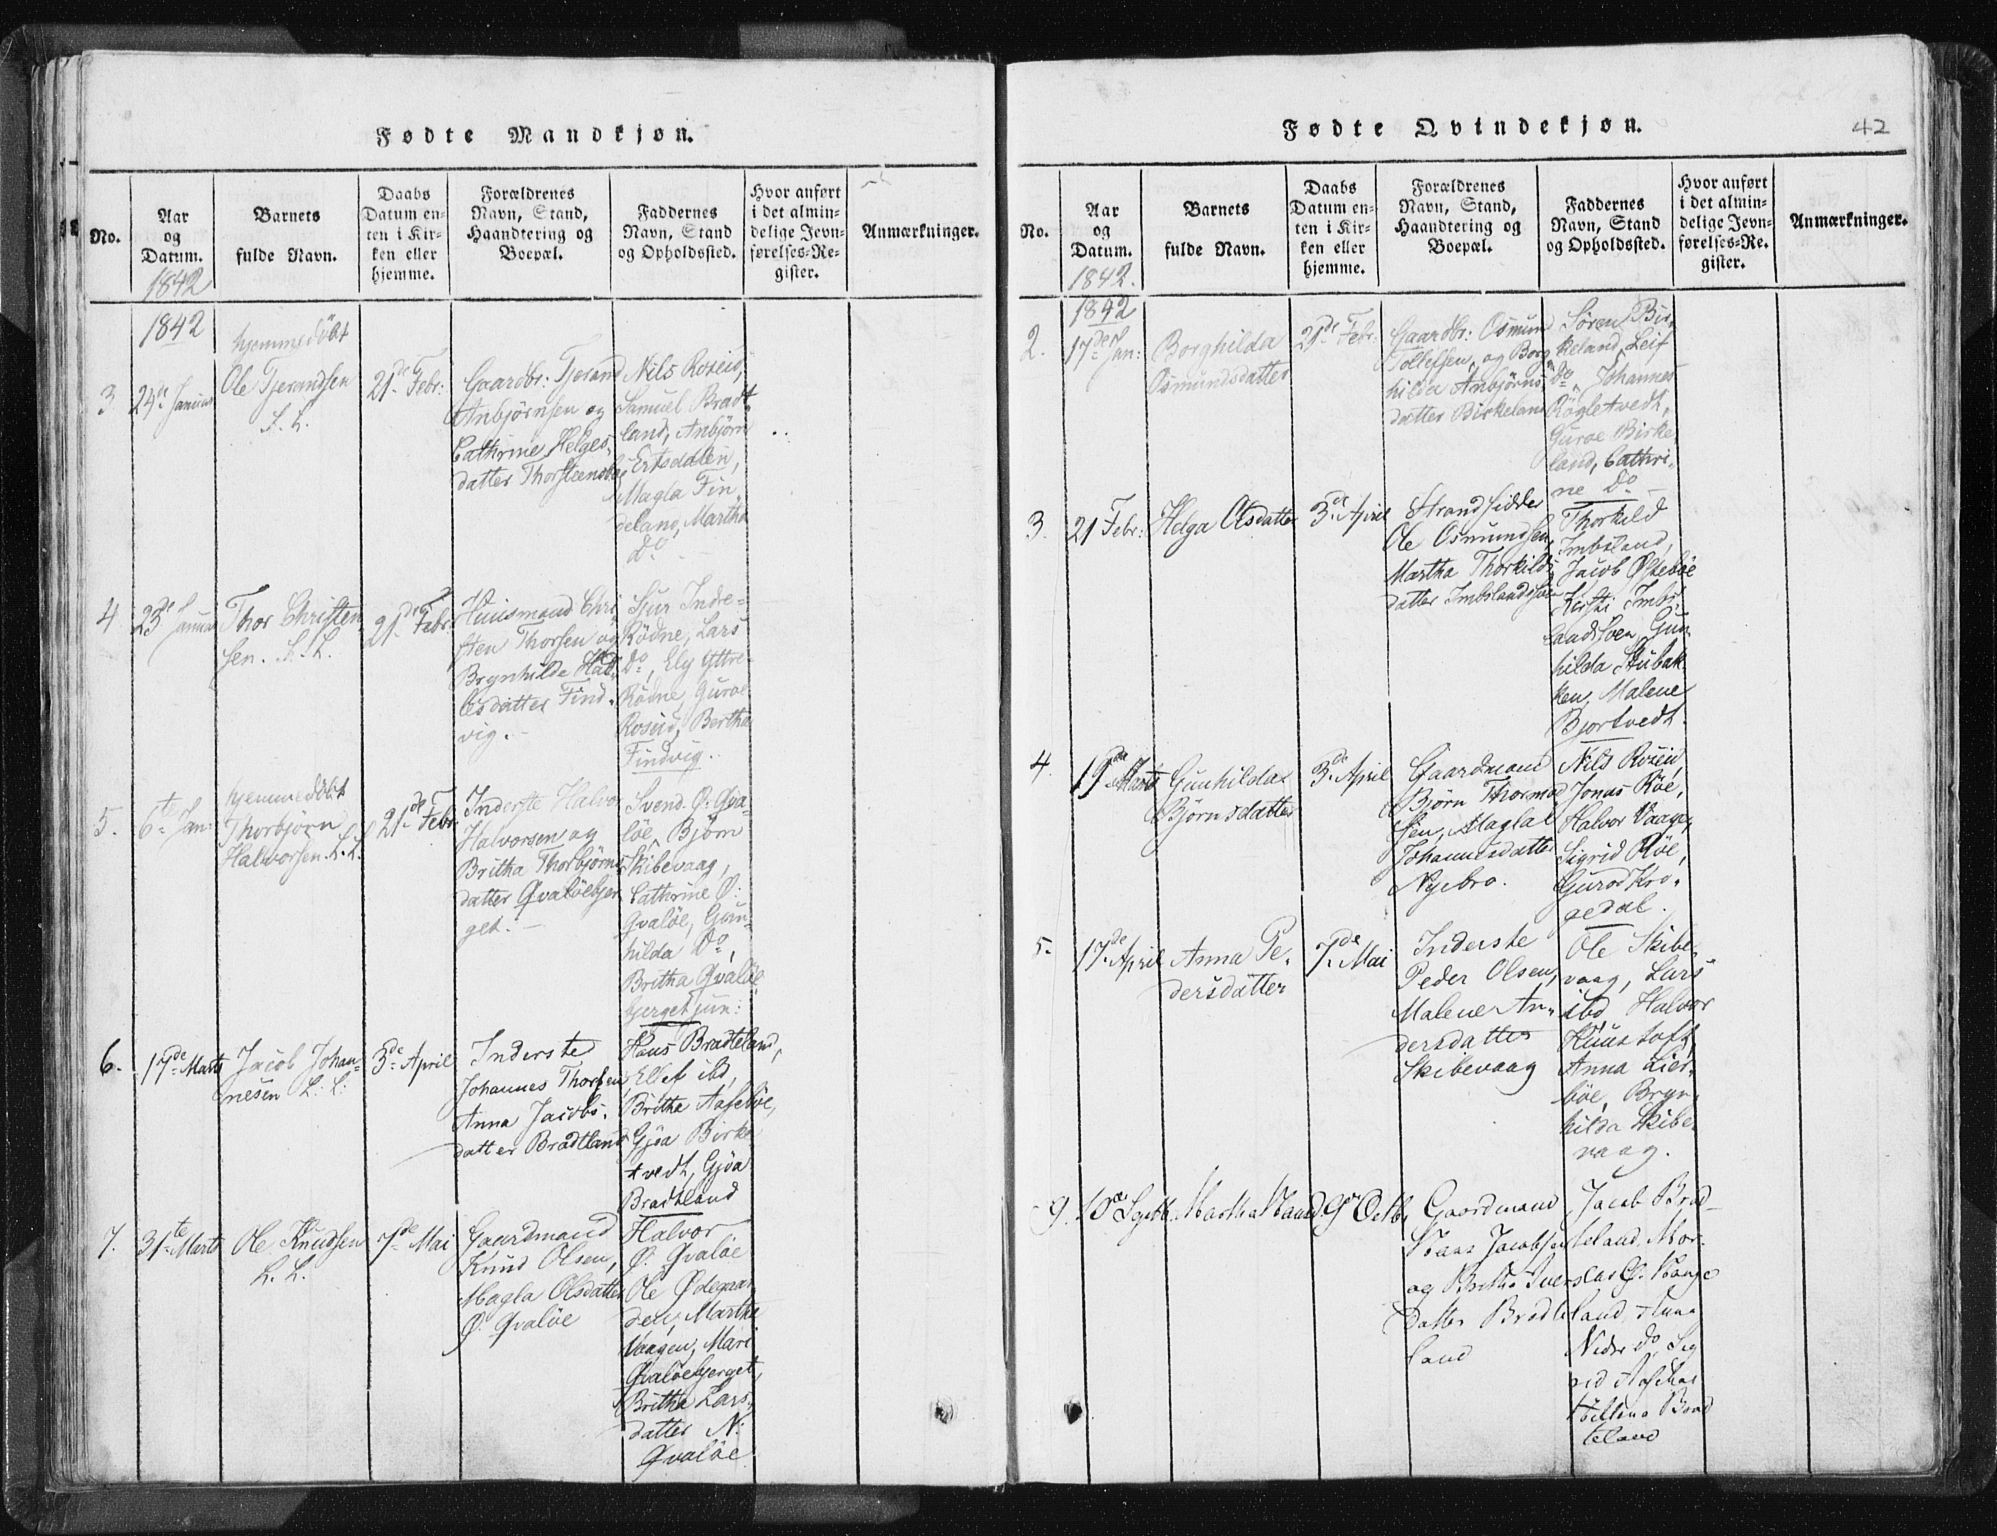 Fødte Mandkjøn.
No.
Aar
og
Datum.
1842
Barnets
fulde Navn.
Daabs
Datum en-
ten i Kir-
ken eller
hjemme.
Forældrenes
Navn, Stand,
Haandtering og
Boepæl.
Faddernes
Navn, Stand
og Opholdssted.
Hvor anført
i det almin-
delige Jevn-
førelses-Re-
gister.
Anmærkninger.
1842
3.
24de Januar
hjemmedöbt
Ole Tjerandsen
S. L.
21de Febr:
Gaardbr: Tjerand
Anbjörnsen og
Cathrine Helges-
datter
Nils Roseid,
Samuel Bradt-
land, Anbjörn
Ertsdalen,
Magla Fin-
deland, Martha
Do
4
23de Januar
Thor Christen-
sen. S. L.
21de Febr:
Huusmand Chri-
sten Thorsen og
Brynhilde Had-
lesdatter Find-
vig.
Sjur Indre-
Rödne, Lars
Do, Ely Yttre-
Rödne, Guroe
Roseid, Bertha
Findvig.
5.
6te Jan:
hjemmedöbt
Thorbjörn
Halvorsen. L. L.
21de Febr:
Inderste Halvor
Halvorsen og
Britha Thorbjörns-
datter Qvalöebjer-
get.
Svend Ø: Qva-
löe, Björn
Skibevaag,
Cathrine Ø:
Qvalöe, Gun-
hilda Do,
Britha Qvalöe-
bjerget jun:
6.
17de Marts
Jacob Johan-
nesen L. L.
3de April
Inderste
Johannes Thorsen
Anna Jacobs-
datter Bradtland
Hans Bradteland,
Ellef ibd,
Britha Aaseböe,
Gjöa Birke-
tvedt, Gjöa
Bradtland
7.
31te Marts
Ole Knudsen
L. L.
7de Mai
Gaardmand
Knud Olsen,
Magla Olsdatter
Ø. Qvalöe
Halvor
Ø. Qvalöe
Ole Ødegaar-
den, Martha
Vaagen, Mari
Qvalöebjerget,
Britha Lars-
datter N:
Qvalöe
Fødte Qvindekjøn.
42
No.
Aar
og
Datum.
1842.
Barnets
fulde Navn.
Daabs
Datum en-
ten i Kir-
ken eller
hjemme.
Forældrenes
Navn, Stand,
Haandtering og
Boepæl.
Faddernes
Navn, Stand
og Opholdssted.
Hvor anført
i det almin-
delige Jevn-
førelses-Re-
gister.
Anmærkninger.
1842
2.
17de Jan:
Borghilda
Osmundsdatter
21de Febr:
Gaardbr: Osmund
Tollefsen, og Borg-
hilda Anbjörns-
datter Birkeland
Sören Bir-
keland, Leif
Do, Johannes
Rögletvedt,
Guroe Birke-
land, Cathri-
ne Do
3.
21 Febr:
Helga Olsdatter
3de April
Strandsidder
Ole Osmundsen,
Martha Thorkilds-
datter
Thorkild
Imbsland,
Jacob Østeböe
Kirsti Imbs-
landsoen, Gun-
hilda Stubak-
ken, Malene
Bjortvedt.
4.
19de Marts
Gunhilda
Björnsdatter
3de April
Gaardmand
Björn Thormod-
sen, Magla
Johannesdatter
Nyebro.
Nils Roseid,
Jonas Röe,
Halvor Vaage,
Sigrid Röe,
Guroe Kro-
gedal.
5.
17de April
Anna Pe-
dersdatter
7de Mai
Inderste
Peder Olsen,
Malene An-
dersdatter
Skibevaag
Ole Skibe-
vaag, Lars
ibd, Halvor
Kuustoft,
Anna Lier-
böe, Bryn-
hilda Skibe-
vaag.
9.
10de Septb.
Martha
9de Octb.
Gaardmand
Hans Jacobsen
og Britha Ivers-
datter Bradte-
land
Jacob Brad-
teland,
Anna
Do, Sig-
rid
Brad-
teland